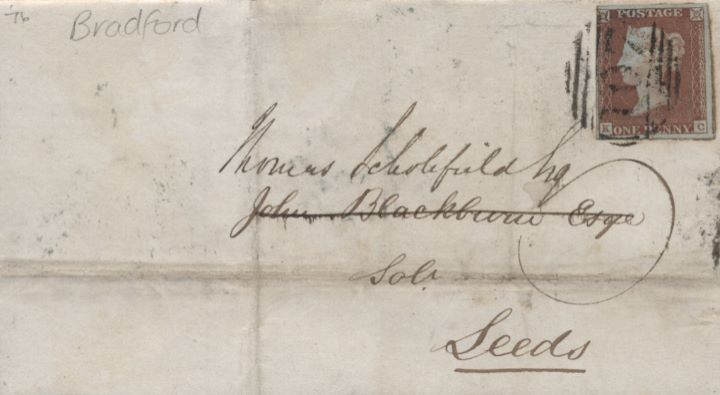 '76
Bradford
POSTAGE
K C
ONE PENNY
Thomas Scholefield Esq
John Blackburn Esqe
Solr
Leeds